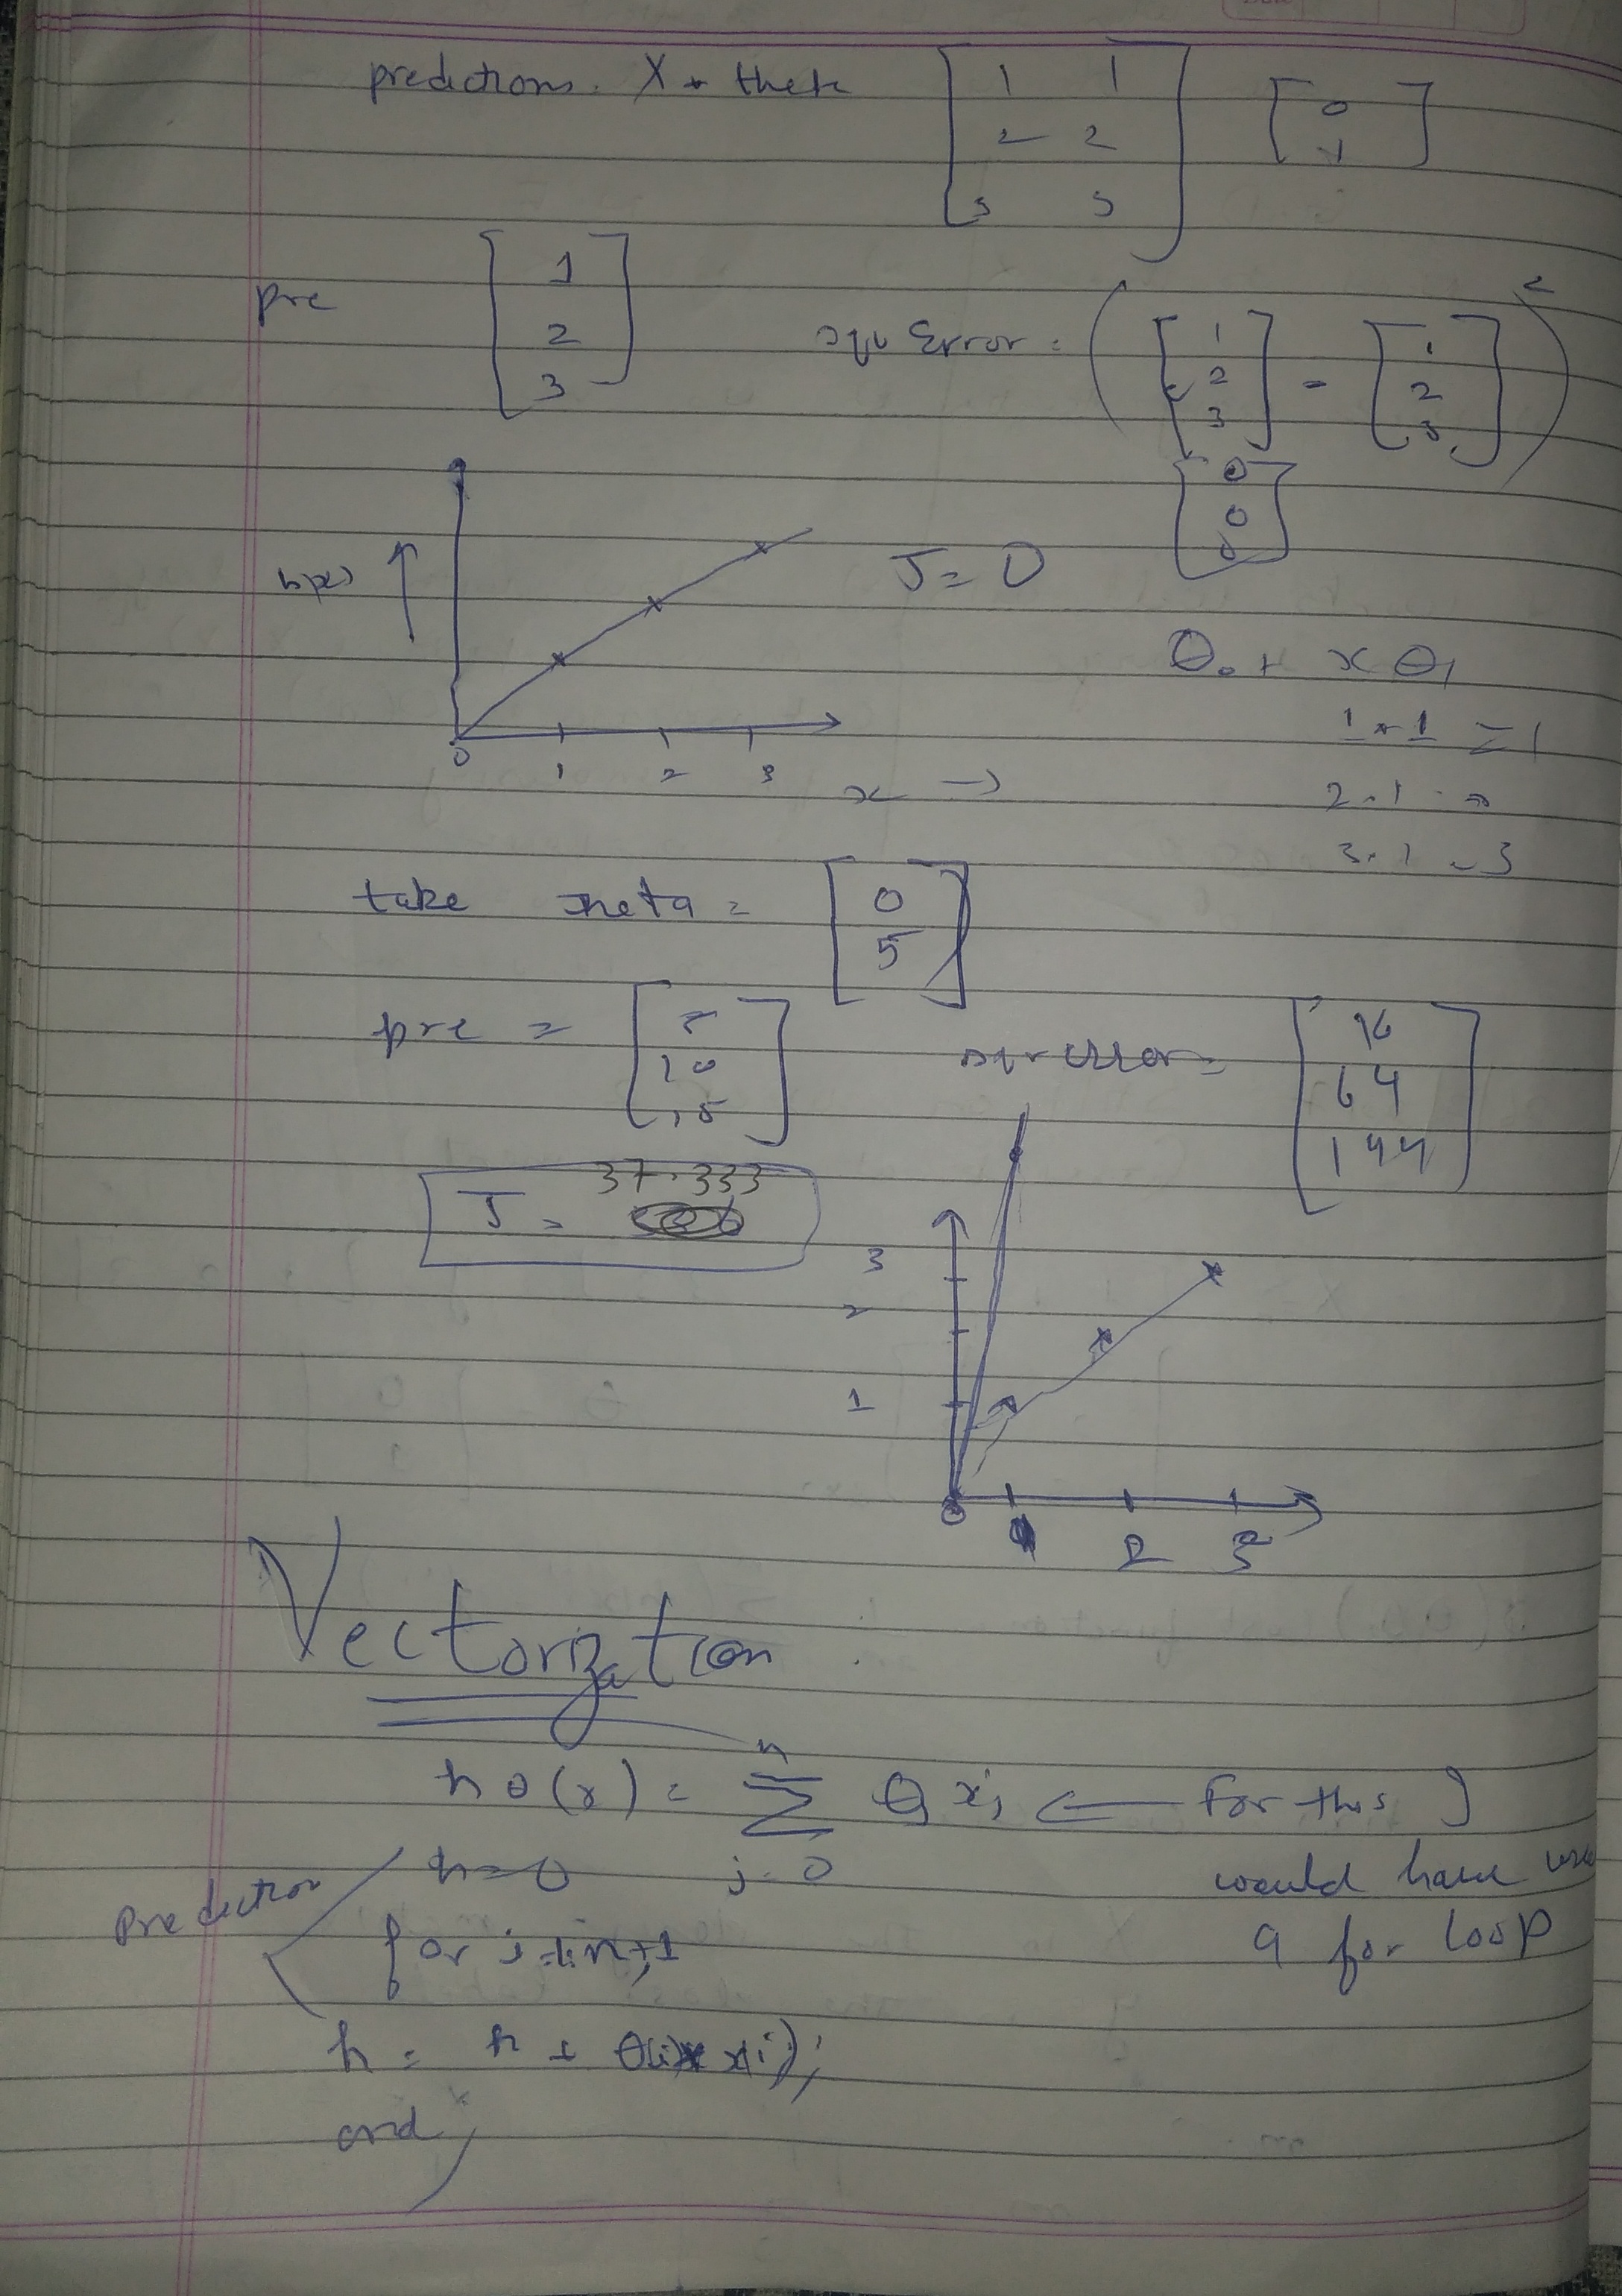 predictions = X * theta [1 1 [0
2 2 1]
3 3]
pre [1
2
3]
sqr Error = ( [1 2 3] - [1 2 3] )²
[0
0
0]
h(x) ↑
J = 0
θ₀ + x θ₁
1 * 1 = 1
0 1 2 3
x →
2 * 1 =
3 * 1 = 3
take theta = [0
5]
pre = [5
10
15]
sqr error = [16
64
144]
J = 37.333
3
2
1
0 2 3
Vectorization
n
hθ(x) = Σ θj xj ← For this I
j=0
would have use
a for loop
Prediction
h=0
for j=1:n+1
h = h + θ(j)* x(j);
end;